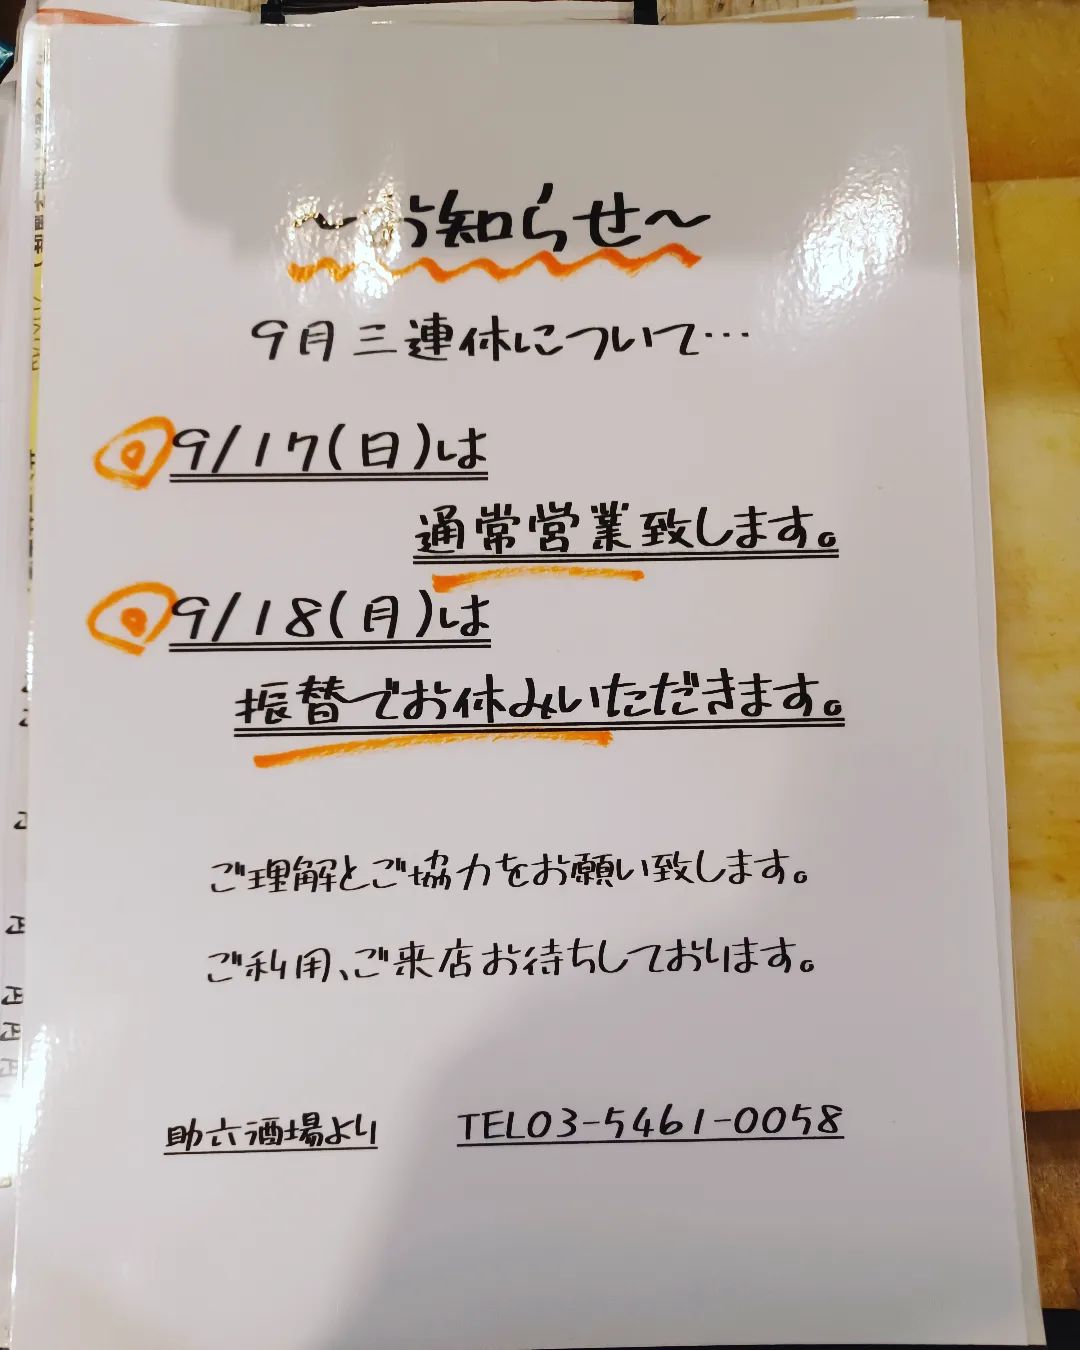 ～お知らせ～
9月三連休について…
9/17(日)は
通常営業致します。
9/18(月)は
振替でお休みいただきます。
ご理解とご協力をお願い致します。
ご利用、ご来店お待ちしております。
助六酒場より TEL03-5461-0058